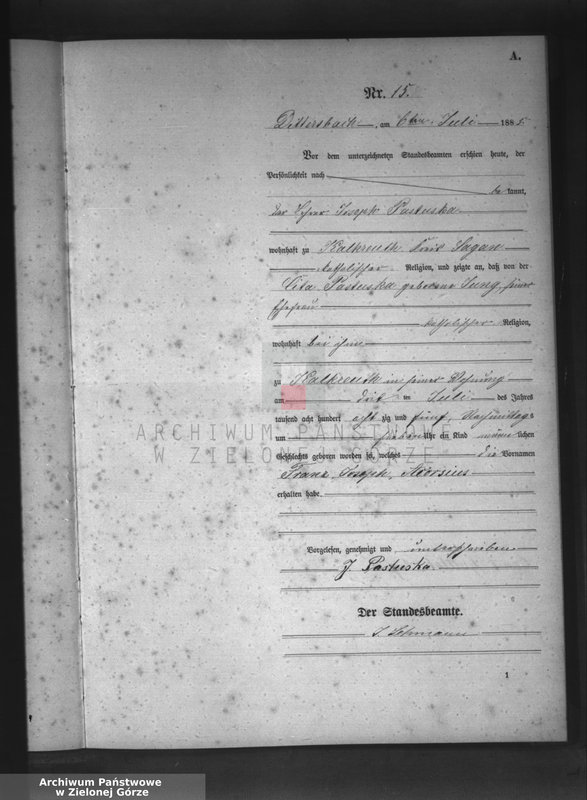 A.
Nr. 15.
Dittersbach, am 6ten Juli 1885.
Vor dem unterzeichneten Standesbeamten erschien heute, der
Persönlichkeit nach
be kannt,
der Lehrer Joseph Pastuska
wohnhaft zu Kalkreuth Kreis Sagan
katholischer Religion, und zeigte an, daß von der
Pastuska geborene Jung, seiner
Ehefrau
katholischer Religion,
wohnhaft bei ihm
zu Kalkreuth in seiner Wohnung
am Juli des Jahres
tausend acht hundert acht zig und fünf, Nachmittags
um sieben Uhr ein Kind männ lichen
Geschlechts geboren worden sei, welches die Vornamen
Franz, Joseph, Aloysius
erhalten habe.
Vorgelesen, genehmigt und unterschrieben
J. Pastuska
Der Standesbeamte.
1
ARCHIWUM PAŃSTWOWE
W ZIELONEJ GÓRZE
Archiwum Państwowe
w Zielonej Górze